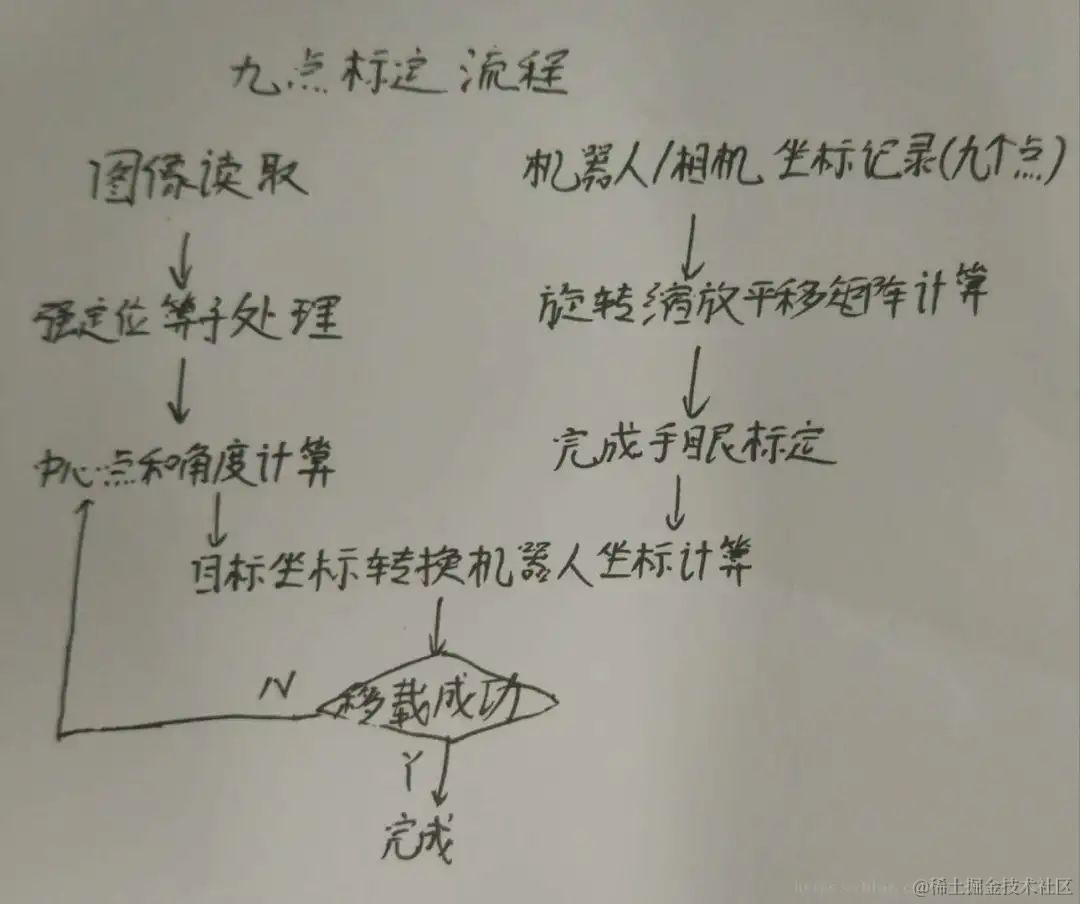 九点标定流程
图像读取
机器人/相机 坐标记录(九个点)
强定位算子处理
旋转缩放平移矩阵计算
中心点和角度计算
完成手眼标定
目标坐标转换机器人坐标计算
移载成功
N
Y
完成
@稀土掘金技术社区